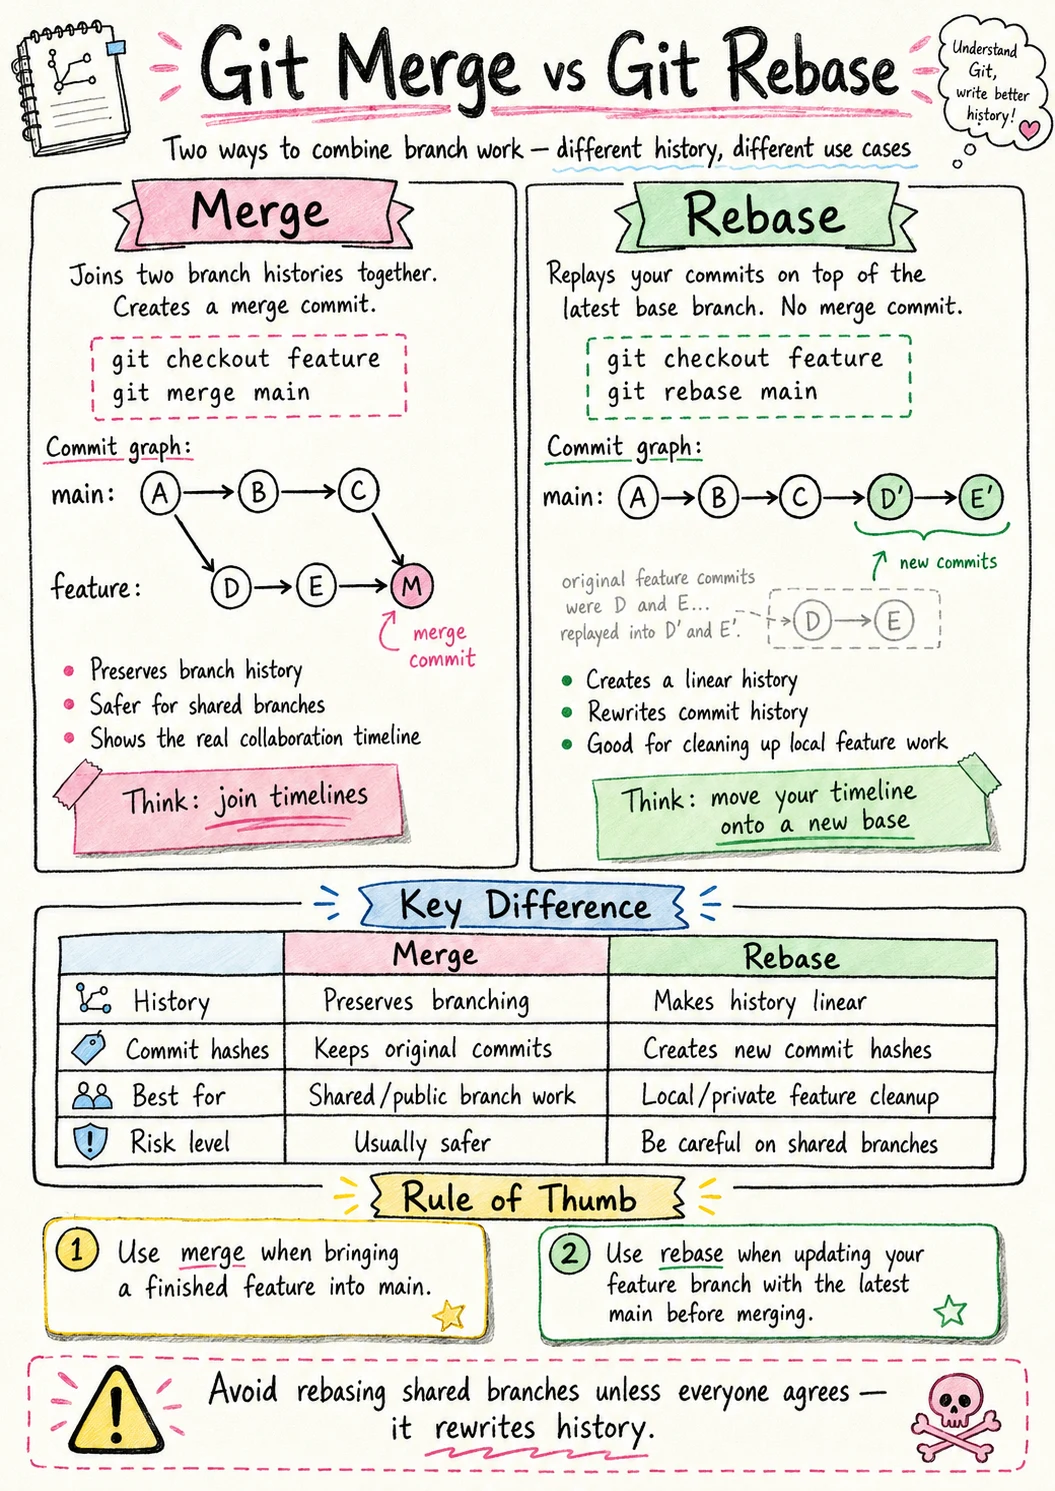 Git Merge vs Git Rebase
Understand
Git,
write better
history!
Two ways to combine branch work – different history, different use cases
Merge
Joins two branch histories together.
Creates a merge commit.
git checkout feature
git merge main
Commit graph:
main: A B C
feature: D E M
merge
commit
• Preserves branch history
• Safer for shared branches
• Shows the real collaboration timeline
Think: join timelines
Rebase
Replays your commits on top of the
latest base branch. No merge commit.
git checkout feature
git rebase main
Commit graph:
main: A B C D' E'
new commits
original feature commits
were D and E...
replayed into D' and E'.
D E
• Creates a linear history
• Rewrites commit history
• Good for cleaning up local feature work
Think: move your timeline
onto a new base
Key Difference
Merge Rebase
History Preserves branching Makes history linear
Commit hashes Keeps original commits Creates new commit hashes
Best for Shared/public branch work Local/private feature cleanup
Risk level Usually safer Be careful on shared branches
Rule of Thumb
1 Use merge when bringing
a finished feature into main.
2 Use rebase when updating your
feature branch with the latest
main before merging.
Avoid rebasing shared branches unless everyone agrees –
it rewrites history.